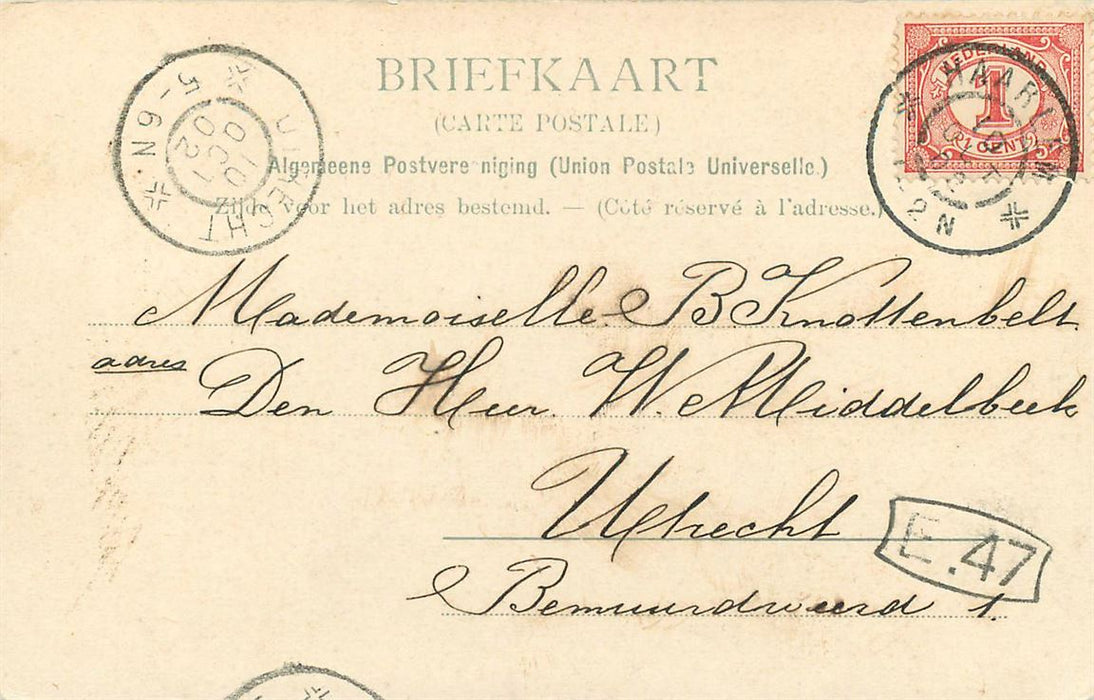 BRIEFKAART
(CARTE POSTALE)
Algemeene Postvereeniging (Union Postale Universelle.)
Zijde voor het adres bestemd. — (Côté réservé à l'adresse.)
NEDERLAND
1
CENT
HAARLEM
2 N
UTRECHT
10 OCT 02
5-6N
Mademoiselle B. Knottenbelt
adres
Den Heer W. Middelbeek
Utrecht
Bemuurdweerd 1.
E.47